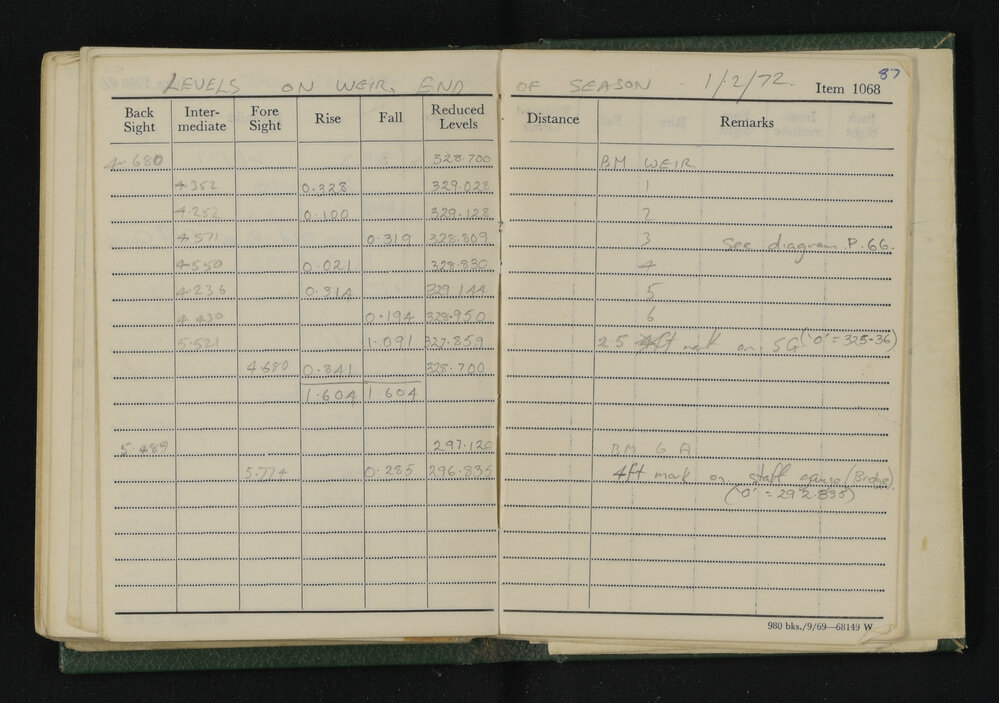 87
LEVELS ON WEIR, END OF SEASON 1/2/72.
Item 1068
Back Sight Inter-mediate Fore Sight Rise Fall Reduced Levels Distance Remarks
4.680 328.700 BM WEIR
4.352 0.328 329.028 1
4.252 0.100 329.128 2
4.571 0.319 328.809 3 See diagram P.66.
4.550 0.021 328.830 4
4.236 0.314 329.144 5
4.430 0.194 328.950 6
5.521 1.091 327.859 2.5 ft mark on SG ('0' = 325.36)
4.680 0.841 328.700
1.604 1.604
5.489 297.120 BM G A
5.774 0.285 296.835 4ft mark on staff gauge (Bridge).
('0' = 292.835)
980 bks./9/69—68149 W